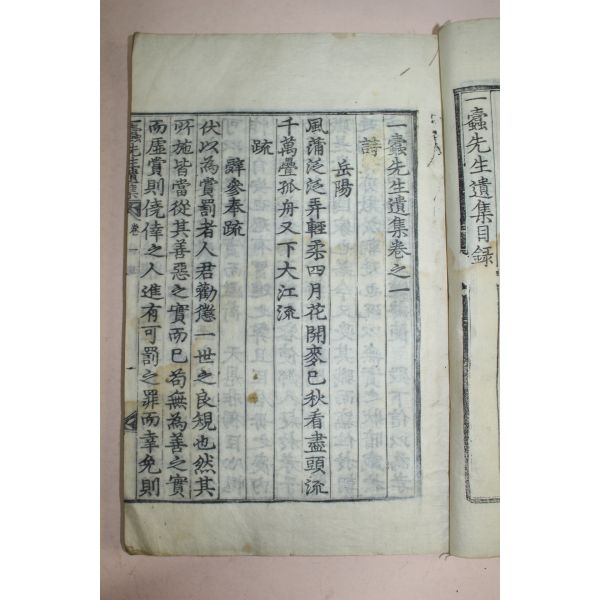 一蠹先生遺集目錄
一蠹先生遺集卷之一
詩
岳陽
風蒲泛泛弄輕柔四月花開麥已秋看盡頭流
千萬疊孤舟又下大江流
疏
辭參奉疏
伏以為賞罰者人君勸懲一世之良規也然其
所施皆當從其善惡之實而已苟無為善之實
而虛賞則僥倖之人進有可罰之罪而幸免則
一蠹先生遺集 卷一